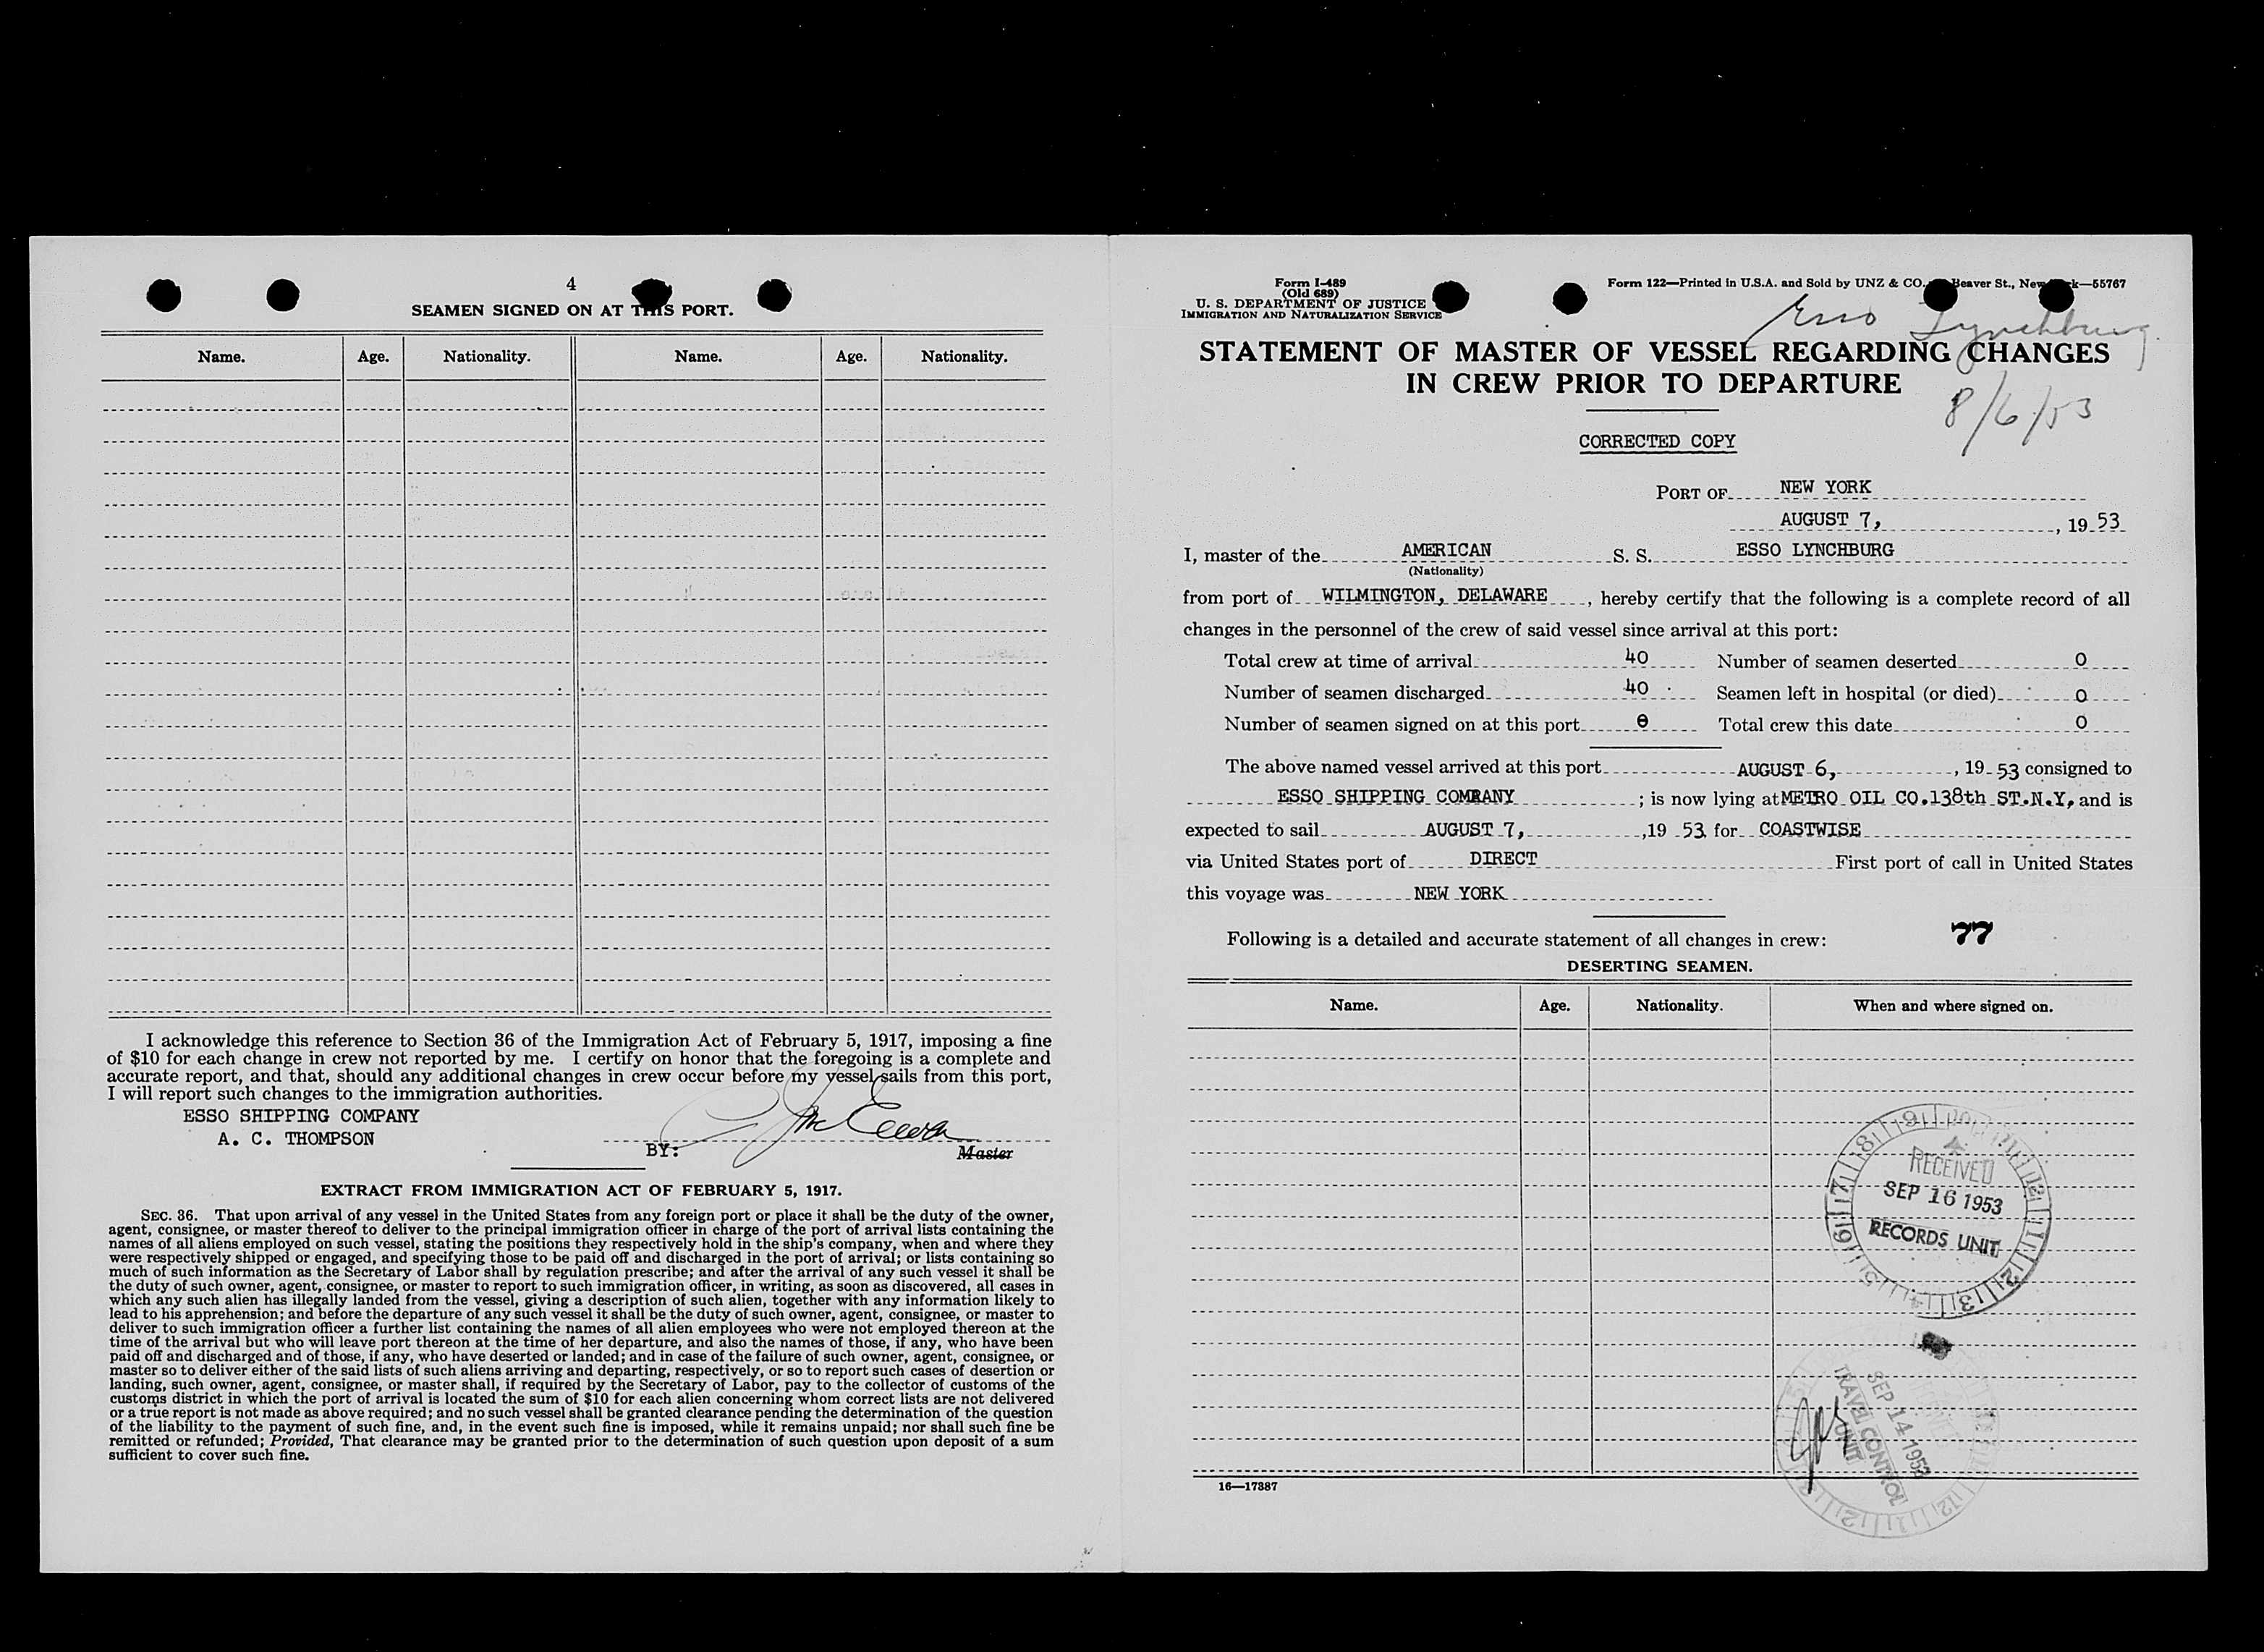 4
SEAMEN SIGNED ON AT THIS PORT.
Name. Age. Nationality. Name. Age. Nationality.
I acknowledge this reference to Section 36 of the Immigration Act of February 5, 1917, imposing a fine
of $10 for each change in crew not reported by me. I certify on honor that the foregoing is a complete and
accurate report, and that, should any additional changes in crew occur before my vessel sails from this port,
I will report such changes to the immigration authorities.
ESSO SHIPPING COMPANY
A. C. THOMPSON
BY:
Master
EXTRACT FROM IMMIGRATION ACT OF FEBRUARY 5, 1917.
SEC. 36. That upon arrival of any vessel in the United States from any foreign port or place it shall be the duty of the owner,
agent, consignee, or master thereof to deliver to the principal immigration officer in charge of the port of arrival lists containing the
names of all aliens employed on such vessel, stating the positions they respectively hold in the ship's company, when and where they
were respectively shipped or engaged, and specifying those to be paid off and discharged in the port of arrival; or lists containing so
much of such information as the Secretary of Labor shall by regulation prescribe; and after the arrival of any such vessel it shall be
the duty of such owner, agent, consignee, or master to report to such immigration officer, in writing, as soon as discovered, all cases in
which any such alien has illegally landed from the vessel, giving a description of such alien, together with any information likely to
lead to his apprehension; and before the departure of any such vessel it shall be the duty of such owner, agent, consignee, or master to
deliver to such immigration officer a further list containing the names of all alien employees who were not employed thereon at the
time of the arrival but who will leave port thereon at the time of her departure, and also the names of those, if any, who have been
paid off and discharged and of those, if any, who have deserted or landed; and in case of the failure of such owner, agent, consignee, or
master so to deliver either of the said lists of such aliens arriving and departing, respectively, or so to report such cases of desertion or
landing, such owner, agent, consignee, or master shall, if required by the Secretary of Labor, pay to the collector of customs of the
customs district in which the port of arrival is located the sum of $10 for each alien concerning whom correct lists are not delivered
or a true report is not made as above required; and no such vessel shall be granted clearance pending the determination of the question
of the liability to the payment of such fine, and, in the event such fine is imposed, while it remains unpaid; nor shall such fine be
remitted or refunded; Provided, That clearance may be granted prior to the determination of such question upon deposit of a sum
sufficient to cover such fine.
Form I-489
(Old 689)
U. S. DEPARTMENT OF JUSTICE
IMMIGRATION AND NATURALIZATION SERVICE
Form 122—Printed in U.S.A. and Sold by UNZ & CO. Beaver St., New k—55767
Esso Lynchburg
STATEMENT OF MASTER OF VESSEL REGARDING CHANGES
IN CREW PRIOR TO DEPARTURE
8/6/53
CORRECTED COPY
PORT OF NEW YORK
AUGUST 7, , 19 53
I, master of the AMERICAN S. S. ESSO LYNCHBURG
(Nationality)
from port of WILMINGTON, DELAWARE , hereby certify that the following is a complete record of all
changes in the personnel of the crew of said vessel since arrival at this port:
Total crew at time of arrival 40 Number of seamen deserted 0
Number of seamen discharged 40 Seamen left in hospital (or died) 0
Number of seamen signed on at this port 0 Total crew this date 0
The above named vessel arrived at this port AUGUST 6, , 19 53 consigned to
ESSO SHIPPING COMPANY ; is now lying at METRO OIL CO.138th ST.N.Y, and is
expected to sail AUGUST 7, ,19 53 for COASTWISE
via United States port of DIRECT First port of call in United States
this voyage was NEW YORK
Following is a detailed and accurate statement of all changes in crew: 77
DESERTING SEAMEN.
Name. Age. Nationality. When and where signed on.
RECEIVED
SEP 16 1953
RECORDS UNIT
SEP 14 1953
TRAVEL CONTROL
UNIT
16—17387